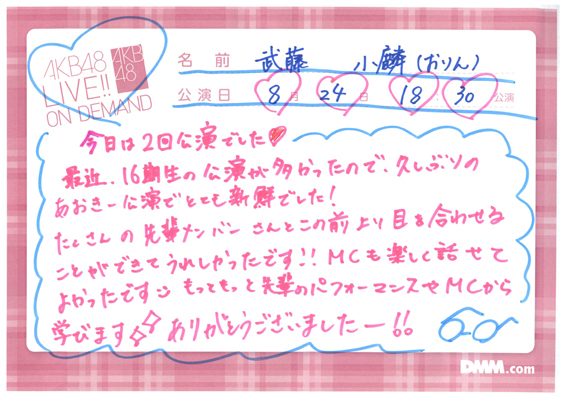 AKB48
LIVE!!
ON DEMAND
AKB
48
名前 武藤 小麟(おりん)
公演日 8月 24日 18:30公演
今日は2回公演でした♥
最近、16期生の公演が多かったので、久しぶりの
あおきー公演でとても新鮮でした!
たくさんの先輩メンバーさんとこの前より目を合わせる
ことができてうれしかったです!!MCも楽しく話せて
よかったです もっともっと先輩のパフォーマンスやMCから
学びます ありがとうございましたー!!
DMM.com